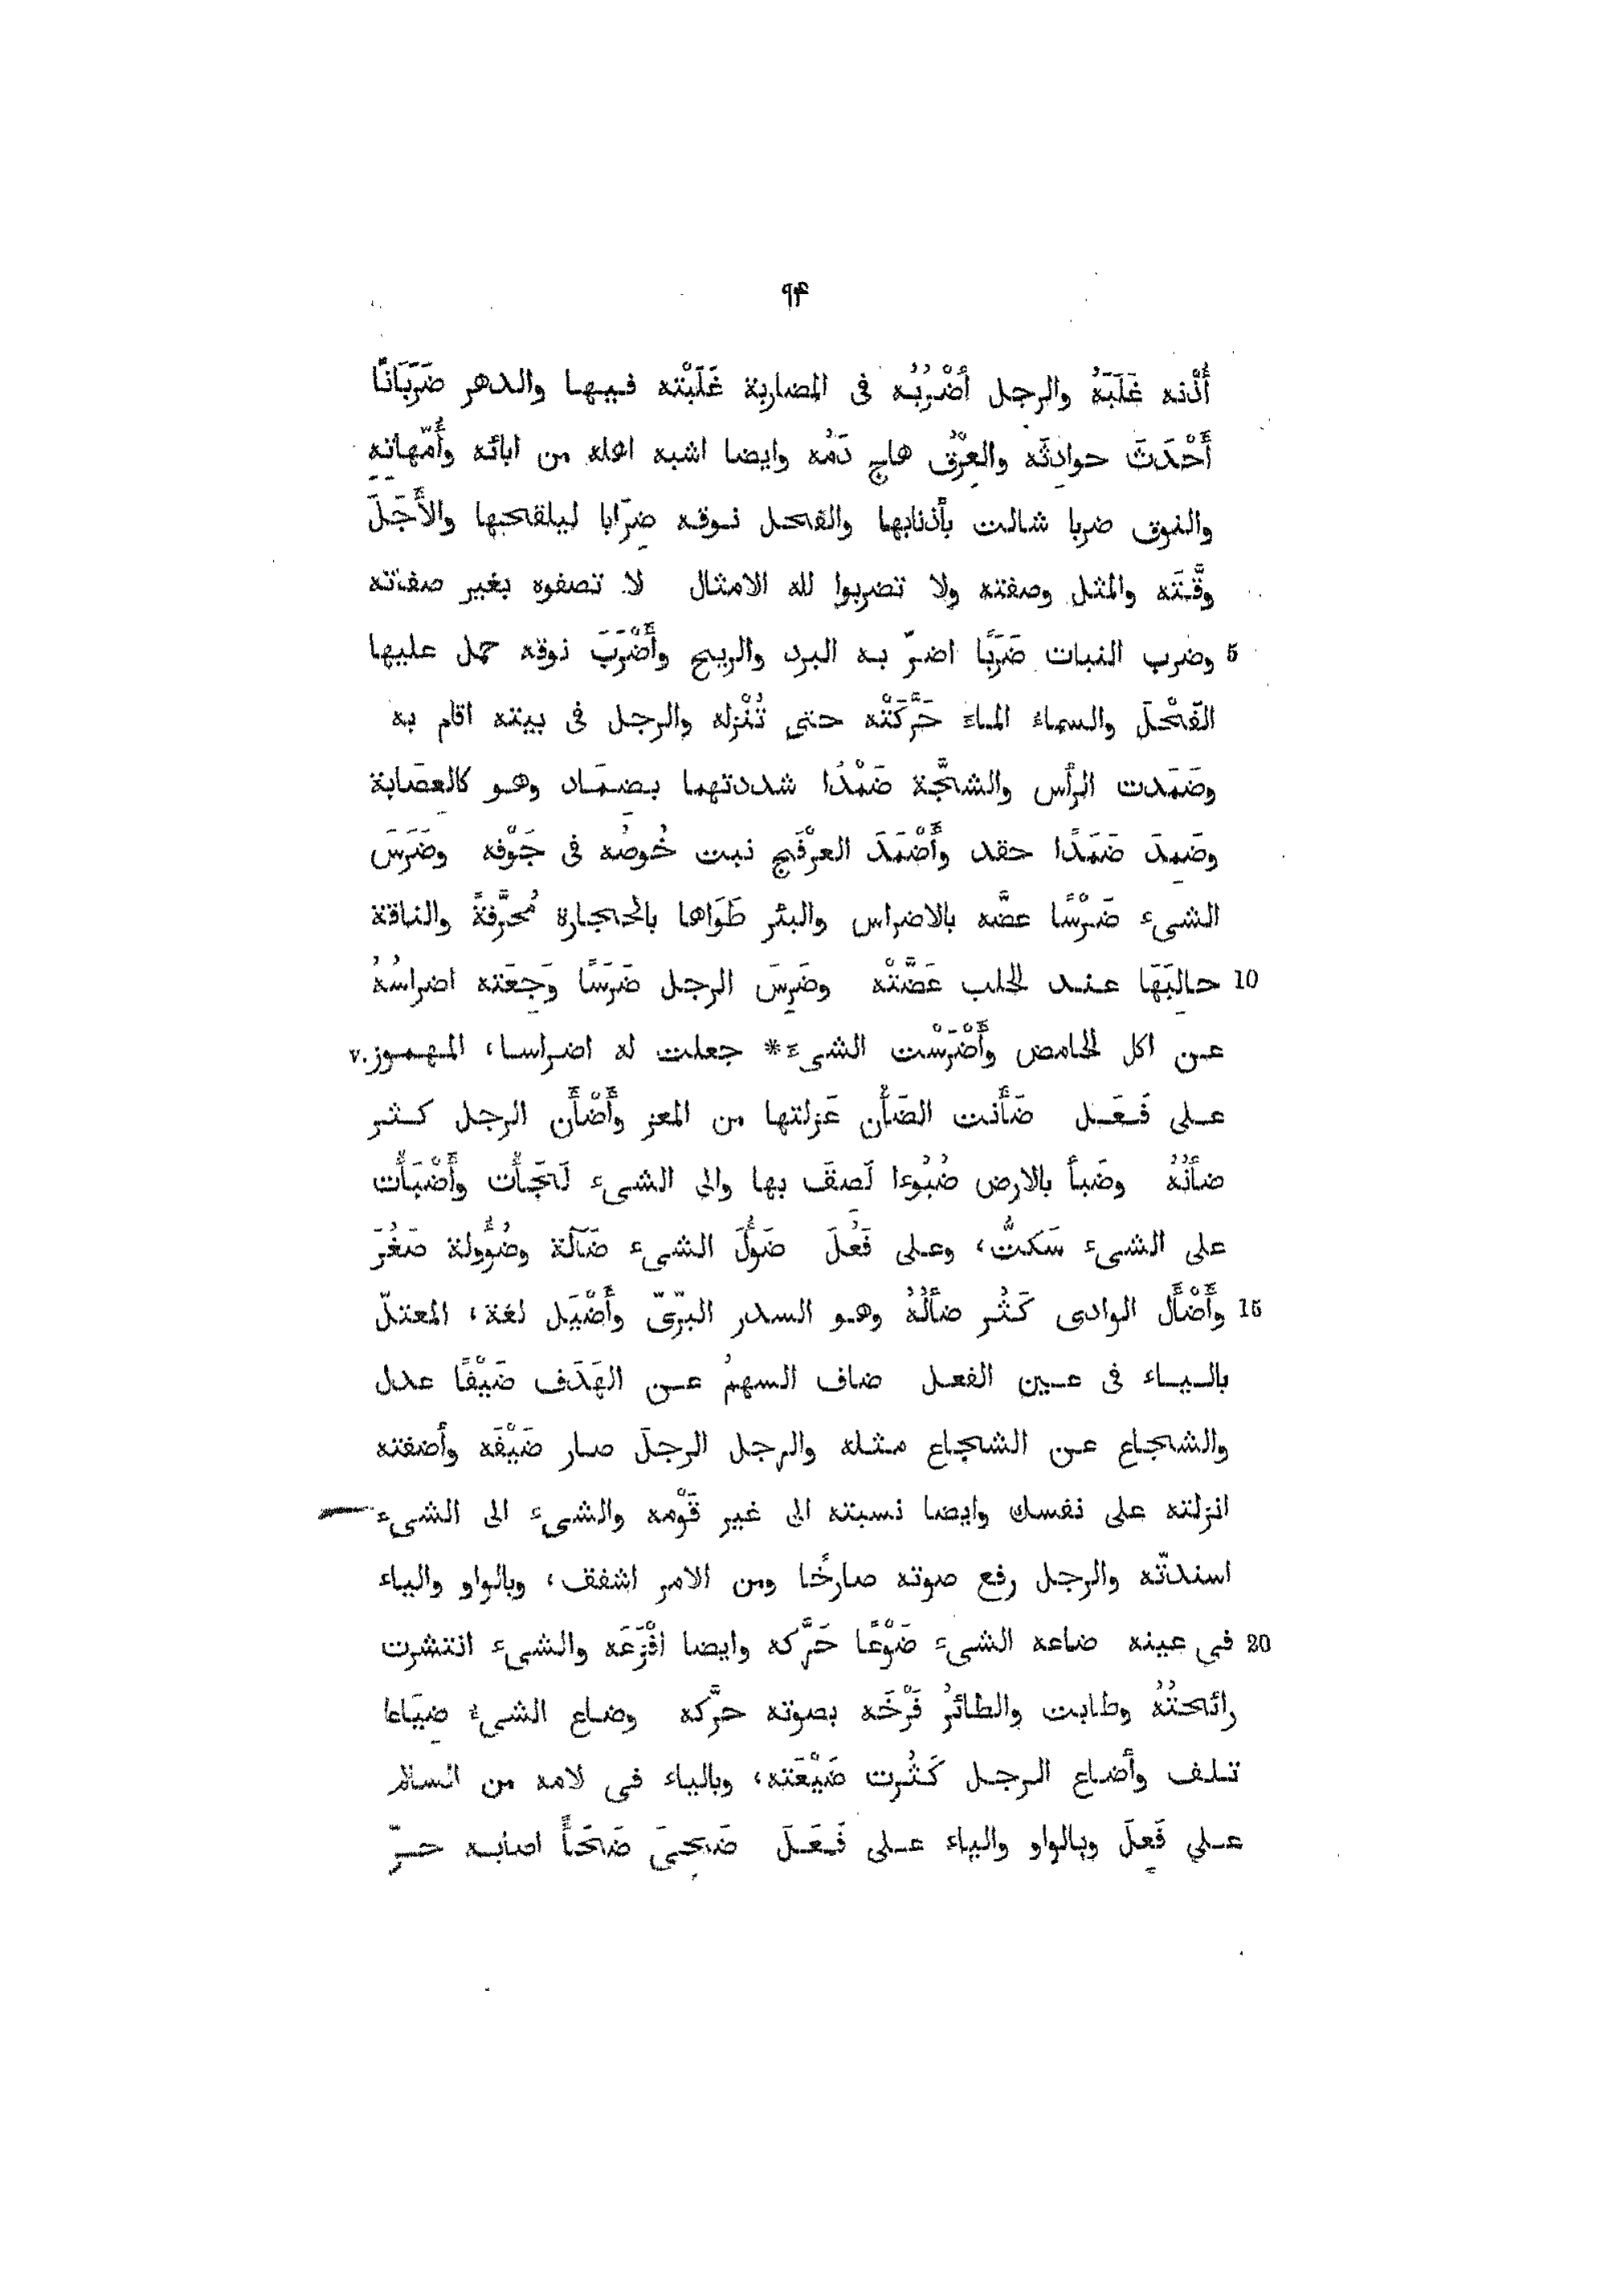 ۹۴
أُذْنه غَلَبَهُ والرجل أَضْرُبُه فى المضاربة غَلَبْته فيها والدهر ضَرَبَانًا
أَحْدَثَ حوادِثَه والعِرْقُ هاج دَمُه وايضا اشبه اهله من ابائه وأُمّهاتِهِ
والنوق ضربا شالت بأذنابها والفحل نوقه ضِرَابا ليلقحها والأَجَلَ
وقَّتَه والمثل وصفته ولا تضربوا لله الامثال لا تصفوه بغير صفاته
5 وضرب النبات ضَرَبًا اضرّ به البرد والريح وأَضْرَبَ نوقه حمل عليها
الفَحْلَ والسماءُ الماءَ حَرَّكَتْه حتى تُنْزله والرجل فى بيته اقام به
وضَمَدت الرأس والشجَّة ضَمْدًا شددتهما بِضِمَاد وهو كالعِصَابة
وضَمِدَ ضَمَدًا حقد وأَضْمَدَ العرْفَج نبت خُوصُه فى جَوْفه وضَرَسَ
الشىء ضَرْسًا عضَّه بالاضراس والبئر طَوَاها بالحجارة مُحَرَّفةً والناقة
10 حالِبَهَا عند الحلب عَضَّتْه وضَرِسَ الرجل ضَرَسًا وَجِعَته اضراسُهُ
عن اكل الحامض وأَضْرَسْت الشىءَ* جعلت له اضراسا، المهموز v.
على فَعَل ضَأَنت الضَأْن عَزلتها من المعز وأَضْأَن الرجل كثر
ضأنُهُ وضَبأ بالارض ضُبُوءا لَصِقَ بها والى الشىء لَجَأْت وأَضْبَأْت
على الشىء سَكتُّ، وعلى فَعُلَ ضَوُّلَ الشىء ضَآلة وضُوُّولة صَغُرَ
15 وأَضْأَل الوادى كَثُر ضألُهُ وهو السدر البرّىّ وأَضْيَل لغة، المعتلّ
بالياء فى عين الفعل ضاف السهمُ عن الهَدَف ضَيْفًا عدل
والشجاع عن الشجاع مثله والرجل الرجلَ صار ضَيْفَه وأضفته
انزلته على نفسك وايضا نسبته الى غير قَوْمه والشىء الى الشىء
اسندتّه والرجل رفع صوته صارخًا ومن الامر اشفق، وبالواو والياء
20 فى عينه ضاعه الشىء ضَوْعًا حَرَّكه وايضا افْزَعَه والشىء انتشرت
رائحتُهُ وطابت والطائرُ فَرْخَه بصوته حرَّكه وضاع الشىء ضِيَاعا
تلف وأضاع الرجل كَثُرت ضَيْعَته، وبالياء فى لامه من السالم
على فَعِلَ وبالواو والياء على فَعَلَ ضَحِىَ ضَحًأ اصابه حرّ